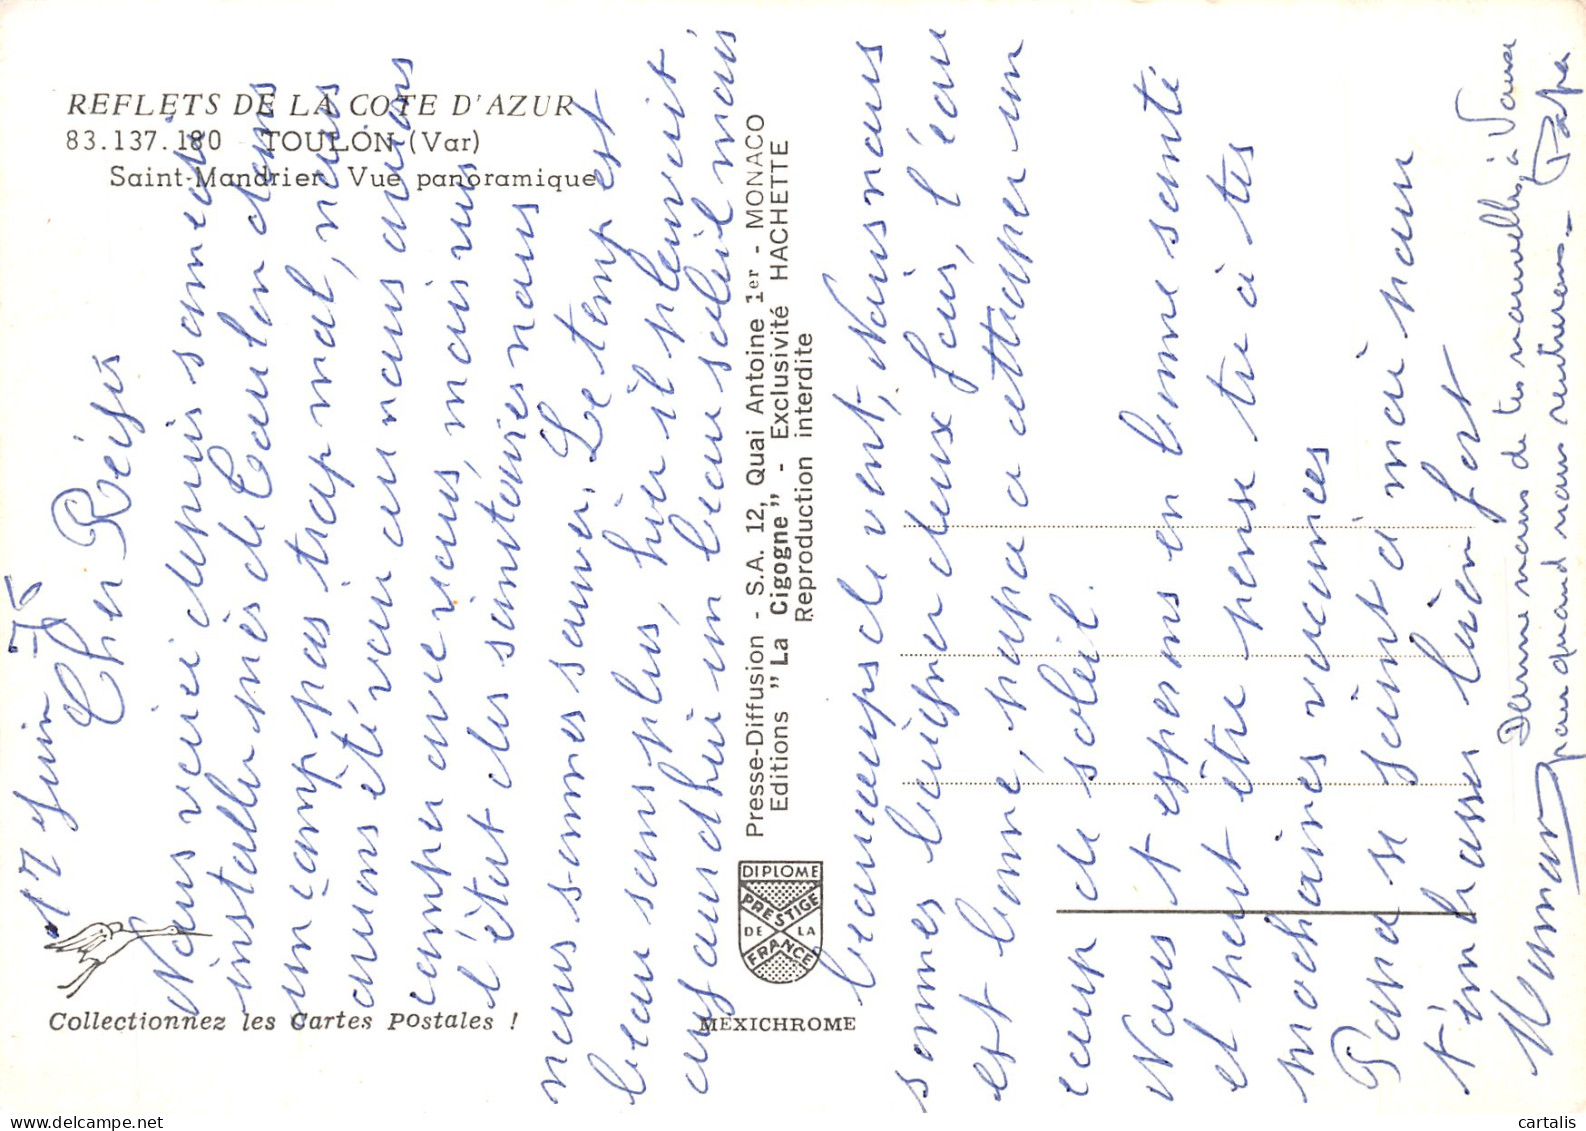 REFLETS DE LA COTE D'AZUR
83.137.180 TOULON (Var)
Saint-Mandrier Vue panoramique
17 Juin 75
Cher Régis
Nous voici depuis samedi
installer près de Toulon dans
un camp pas trop mal, nous
avions été voir ou nous avions
camper avec vous, mais vus
l'état des sanitaires nous
nous sommes sauver. Le temps est
beau sans plus, hier il pleuvait,
aujourd'hui un beau soleil mais
beaucoup de vent, Nous nous
sommes baigner deux fois, l'eau
est bonne, papa a attraper un
coup de soleil.
Nous t'espérons en bonne santé
et peut être pense tu à tes
prochaines vacances
Papa se joint à moi pour
t'embrasser bien fort
Maman
Donne nous de tes nouvelles, à
pour quand nous rentrerons. Papa
Presse-Diffusion - S.A. 12, Quai Antoine 1er - MONACO
Editions "La Cigogne" - Exclusivité HACHETTE
Reproduction interdite
DIPLOME
PRESTIGE
DE LA
FRANCE
Collectionnez les Cartes Postales !
MEXICHROME
cartalis